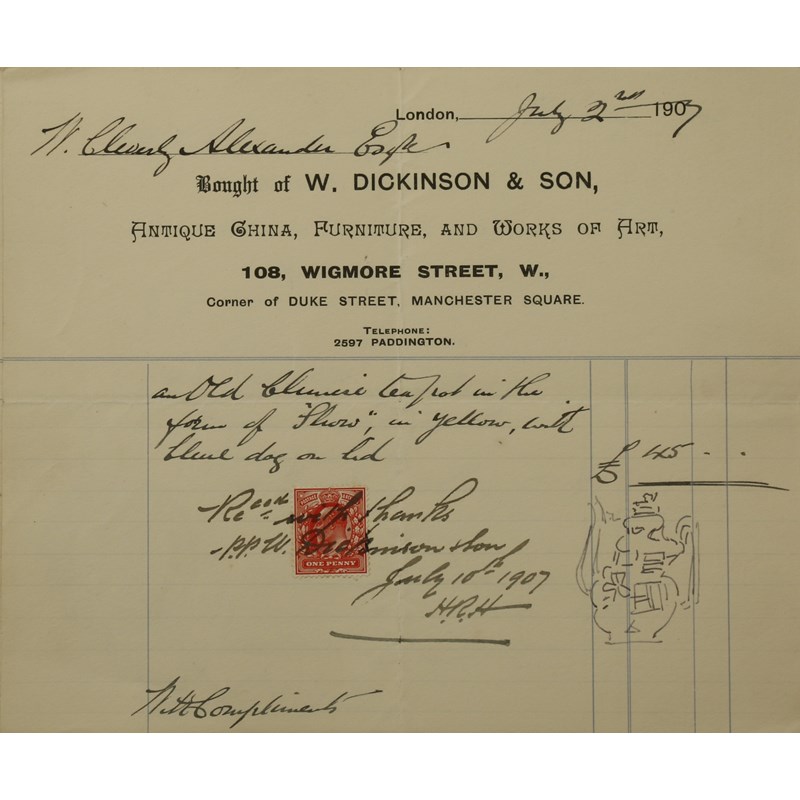 London, July 2nd 1907
W. Cleverly Alexander Esqre
Bought of W. DICKINSON & SON,
ANTIQUE CHINA, FURNITURE, AND WORKS OF ART,
108, WIGMORE STREET, W.,
Corner of DUKE STREET, MANCHESTER SQUARE.
TELEPHONE:
2597 PADDINGTON.
an Old Chinese teapot in the
form of "Show", in yellow, with
blue dog on lid
£ 45 - -
Recd with thanks
p.p. W. Dickinson & Son
ONE PENNY
July 10th 1907
H.R.H
With Compliments